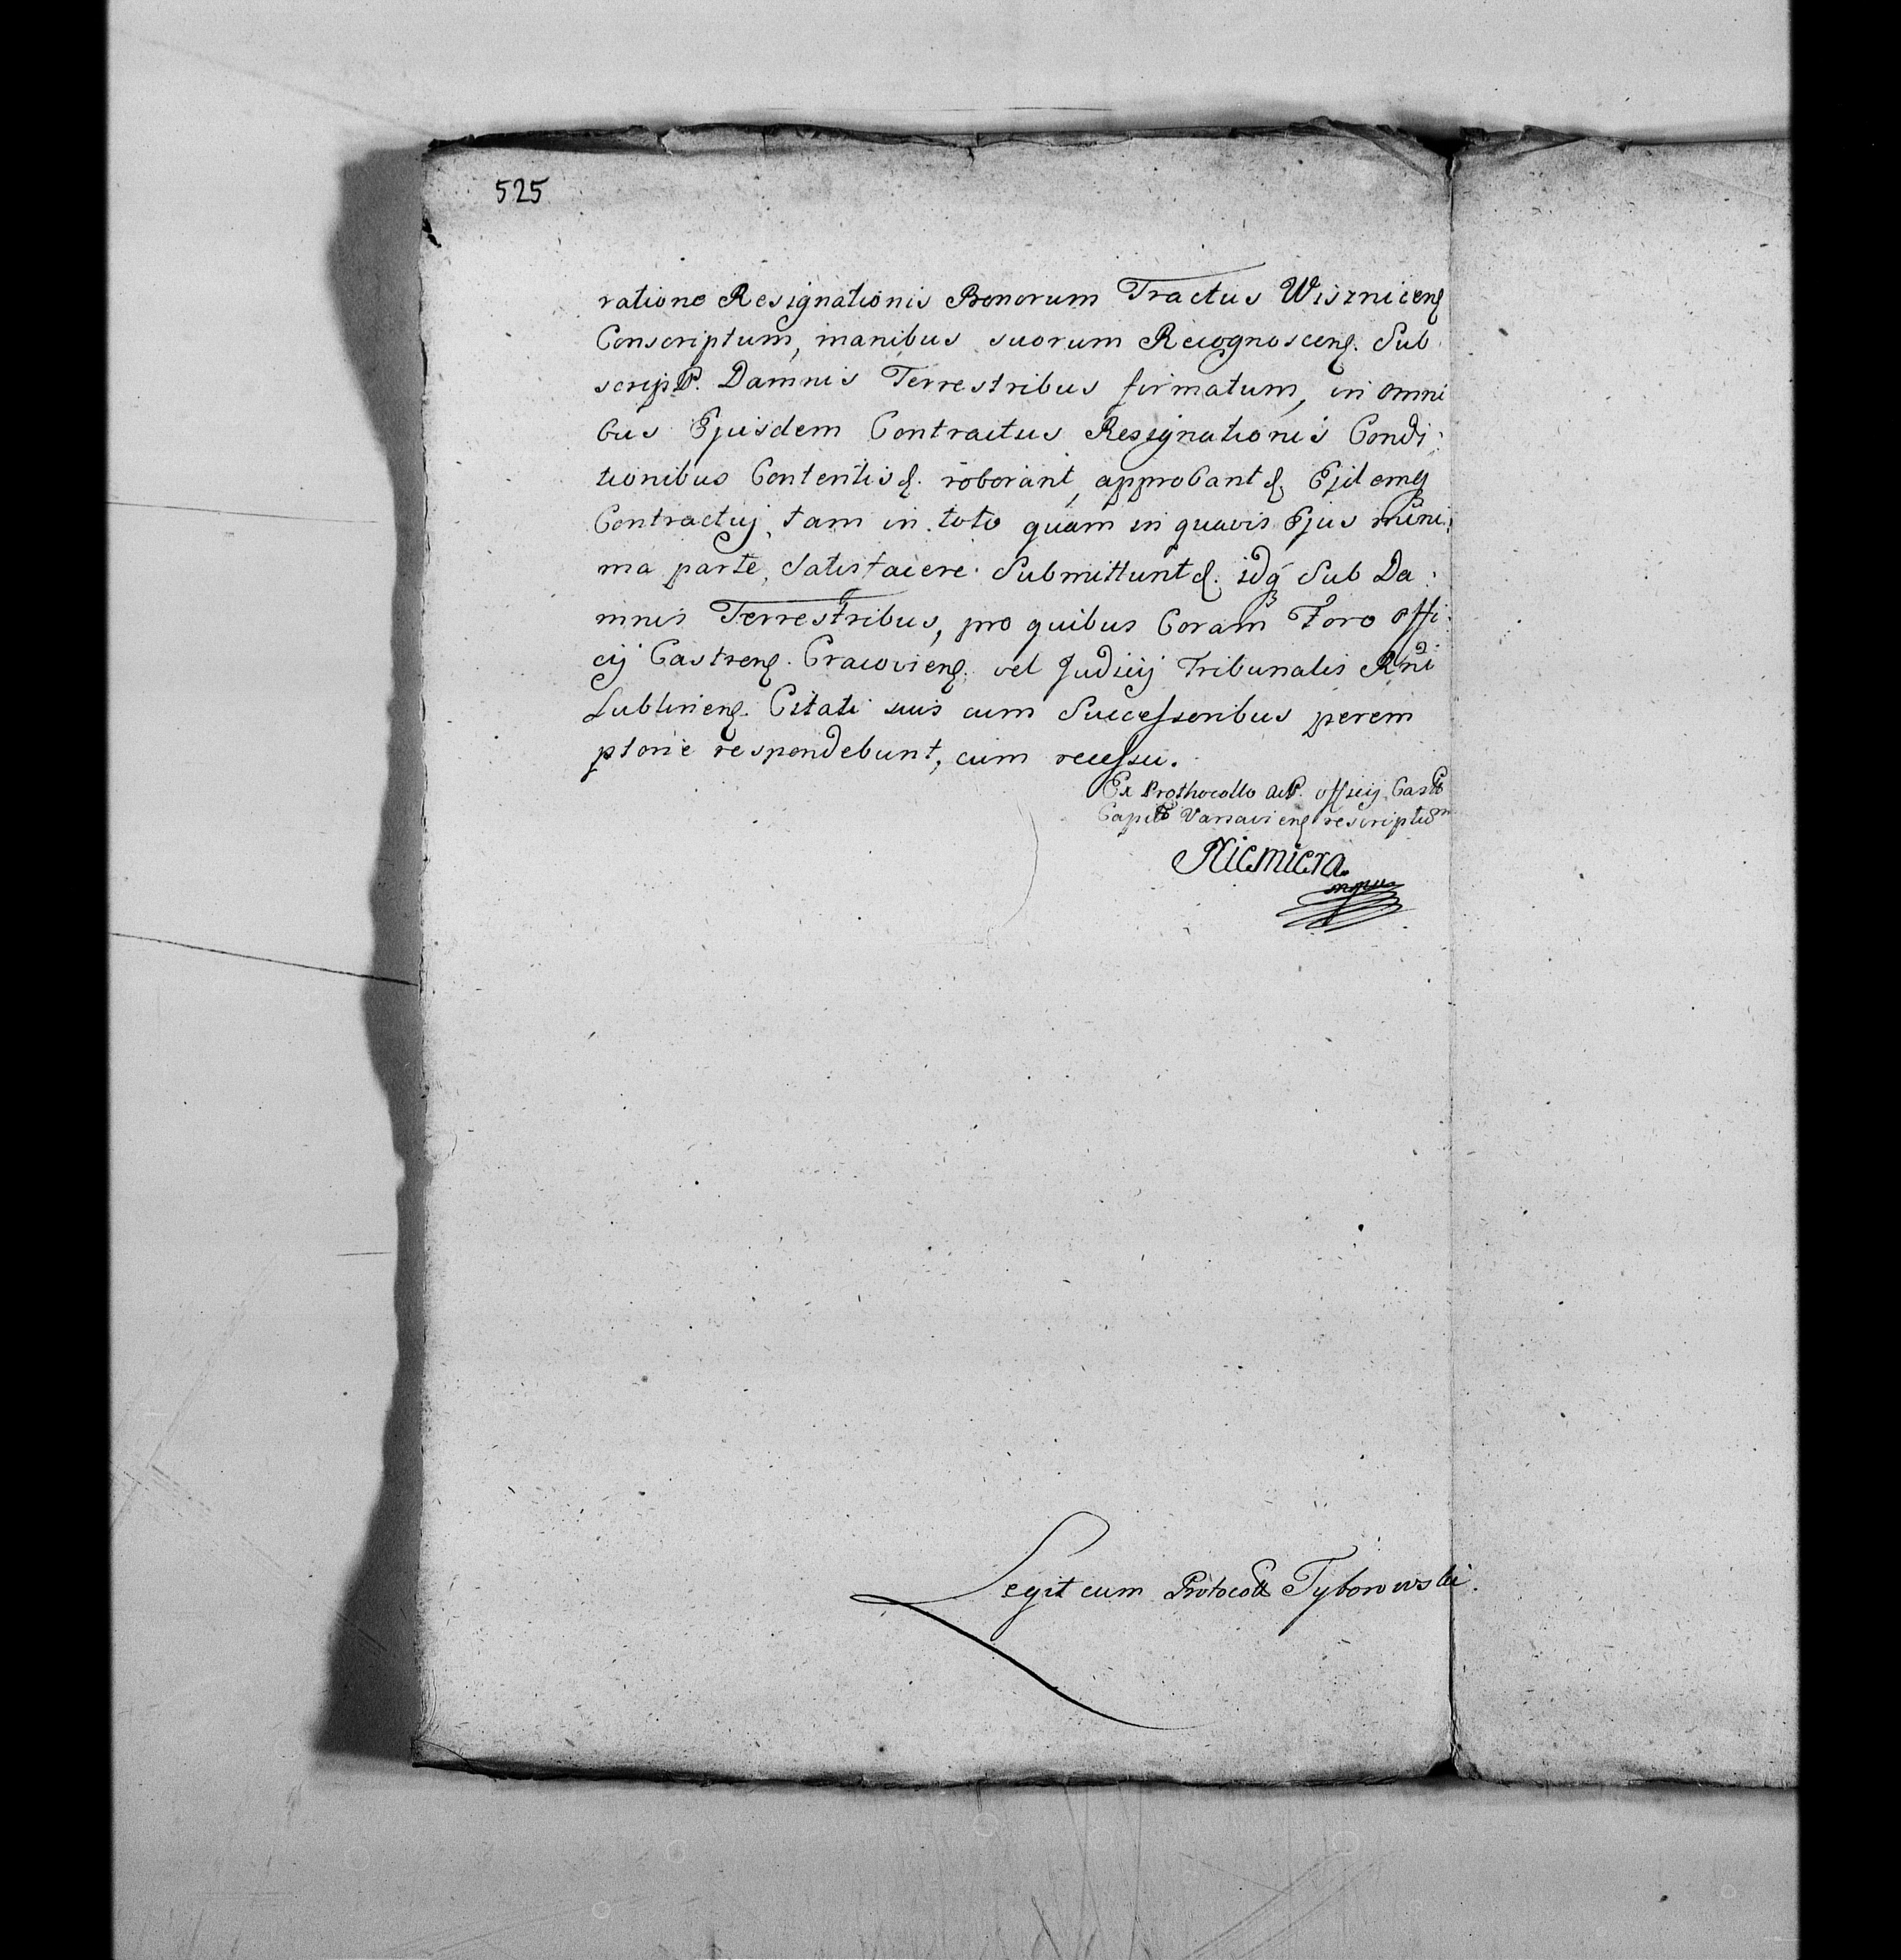 525
ratione Resignationis Bonorum Tractus Wiszniceñ
Conscriptum, manibus suorum Recognosceñ. Sub
script. Damnis Terrestribus firmatum, in omni
bus Ejusdem Contractus Resignationis Condi:
tionibus Contentisq. roborant, approbantq,
Contractuj, tam in toto quam in quavis Ejus mini:
ma parte, Satisfacere Submittuntq. idq Sub Da:
mnis Terrestribus, pro quibus Coram Foro Offi:
cij Castreñ. Cracovieñ. vel Judicij Tribunalis Rñi
Lublineñ. Citati suis cum Successoribus perem
ptorie respondebunt, cum recessu.
Ex Prothocollo officij Castr
Capit Varsavieñ rescriptum
Niemiera
mpp
Legit cum Protocoll Tyborowski.